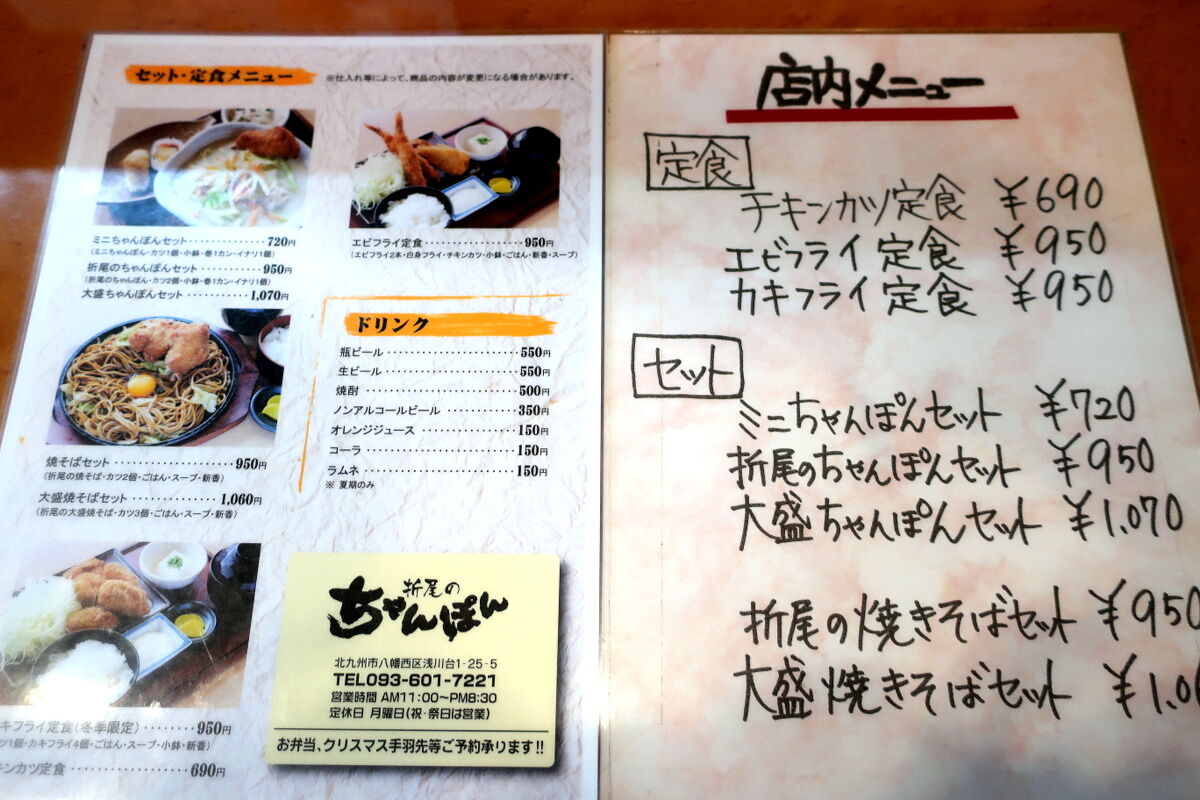 セット・定食メニュー
※仕入れ等によって、商品の内容が変更になる場合があります。
ミニちゃんぽんセット・・・・・・・・・・・・・720円
(ミニちゃんぽん・カツ1個・小鉢・巻1カン・イナリ1個)
折尾のちゃんぽんセット・・・・・・・・・・950円
(折尾のちゃんぽん・カツ2個・小鉢・巻1カン・イナリ1個)
大盛ちゃんぽんセット・・・・・・・・・・1,070円
エビフライ定食・・・・・・・・・・・・・・・・・950円
(エビフライ2本・白身フライ・チキンカツ・小鉢・ごはん・新香・スープ)
ドリンク
瓶ビール・・・・・・・・・・・・・・・・・・・・・・550円
生ビール・・・・・・・・・・・・・・・・・・・・・・550円
焼酎・・・・・・・・・・・・・・・・・・・・・・・・・500円
ノンアルコールビール・・・・・・・・・・・350円
オレンジジュース・・・・・・・・・・・・・・・150円
コーラ・・・・・・・・・・・・・・・・・・・・・・・・150円
ラムネ・・・・・・・・・・・・・・・・・・・・・・・・150円
※ 夏期のみ
焼そばセット・・・・・・・・・・・・・・・・・950円
(折尾の焼そば・カツ2個・ごはん・スープ・新香)
大盛焼そばセット・・・・・・・・・・・・・1,060円
(折尾の大盛焼そば・カツ3個・ごはん・スープ・新香)
キフライ定食(冬季限定)・・・・・・・・950円
ツ1個・カキフライ4個・ごはん・スープ・小鉢・新香)
キンカツ定食・・・・・・・・・・・・・・・・・・690円
折尾の
ちゃんぽん
北九州市八幡西区浅川台1-25-5
TEL093-601-7221
営業時間 AM11:00〜PM8:30
定休日 月曜日(祝・祭日は営業)
お弁当、クリスマス手羽先等ご予約承ります!!
店内メニュー
定食
チキンカツ定食 ¥690
エビフライ定食 ¥950
カキフライ定食 ¥950
セット
ミニちゃんぽんセット ¥720
折尾のちゃんぽんセット ¥950
大盛ちゃんぽんセット ¥1.070
折尾の焼きそばセット ¥950
大盛焼きそばセット ¥1.0